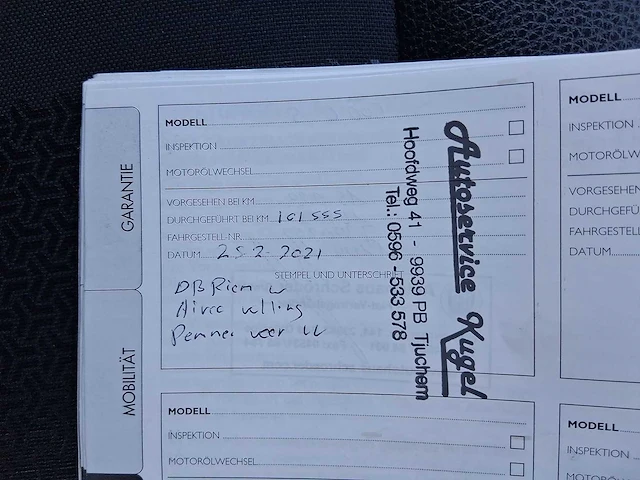 GARANTIE
MOBILITÄT
MODELL
INSPEKTION
MOTORÖLWECHSEL
VORGESEHEN BEI KM
DURCHGEFÜHRT BEI KM 101555
FAHRGESTELL NR.
DATUM 25 2 2021
STEMPEL UND UNTERSCHRIFT
DB Riem
Airco
Autoservice Kugel
Hoofdweg 41 - 9939 PB Tjuchem
Tel.: 0596 - 533 578
MODELL
INSPEKTION
MOTORÖLWECHSEL
MODELL
INSPEKTION
MOTORÖLW
VORGESEHEN
DURCHGEFÜ
FAHRGESTELL
DATUM
MODELL
INSPEKTION